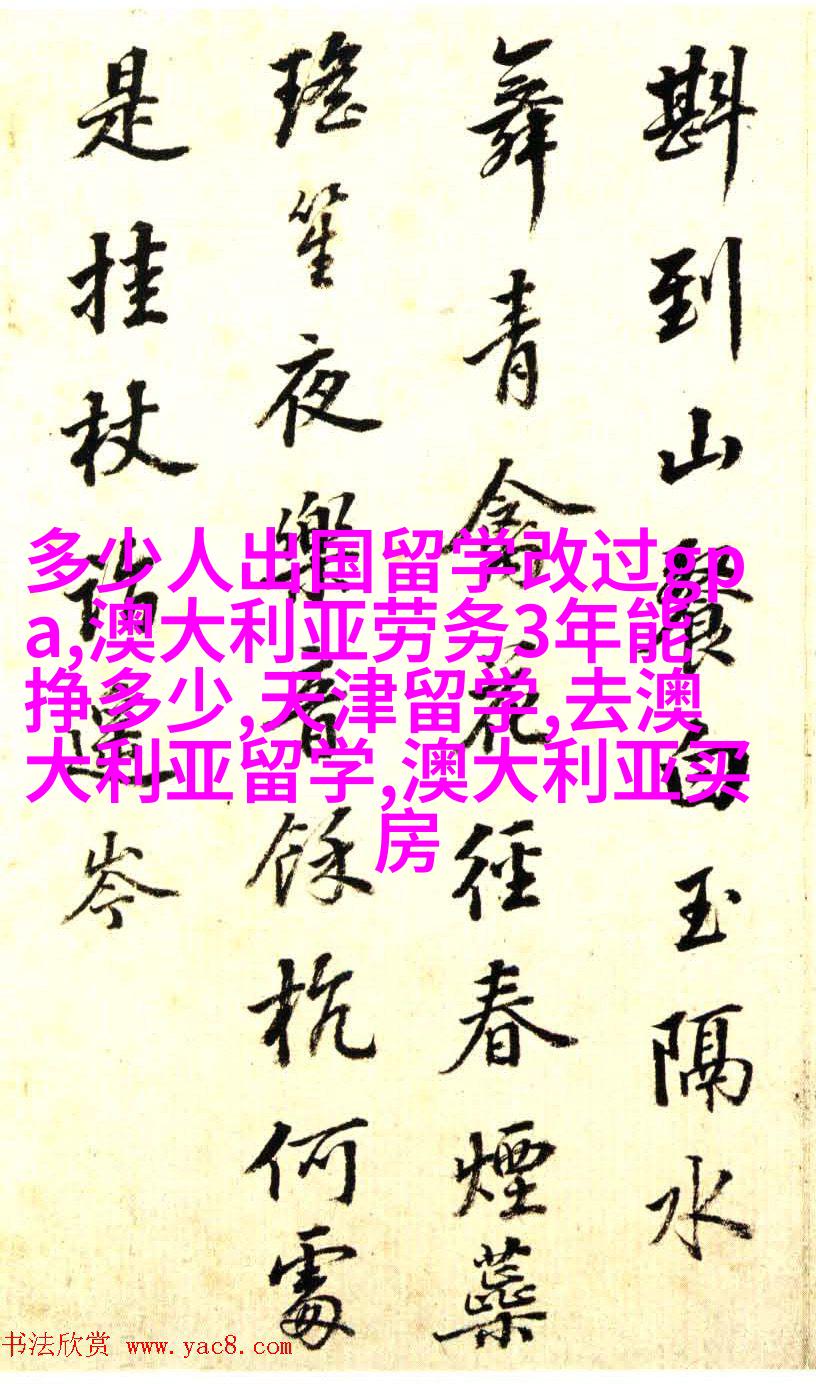 斟到山醫白玉隔水
舞青禽花徑春煙藥
瑤笙夜樂音餘杭何處
是挂杖詣遥岑
多少人出国留学改过gp
a,澳大利亚劳务3年能
挣多少,天津留学,去澳
大利亚留学,澳大利亚买
房
书法欣赏 www.yac8.com